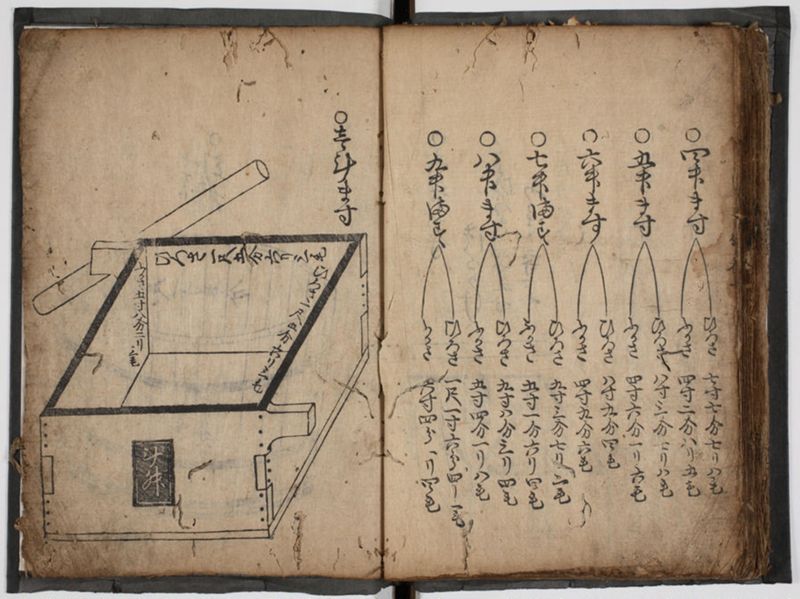 ○四升ます
ひろさ 七寸七分七リ八毛
ふかさ 四寸二分八リ五毛
○五升ます
ひろさ 八寸三分七リ八毛
ふかさ 四寸六分一リ六毛
○六升ます
ひろさ 八寸九分四毛
ふかさ 四寸九分六毛
○七升ます
ひろさ 九寸三分七リ三毛
ふかさ 五寸一分六リ四毛
○八升ます
ひろさ 九寸八分三リ四毛
ふかさ 五寸四分一リ八毛
○九升ます
ひろさ 一尺一寸六分四リ一毛
ふかさ 六寸四分一リ四毛
○壱斗ます
ひろさ一尺五分六リ三毛
ひろさ一尺五分六リ三毛
ふかさ五寸八分二リ三毛
斗升